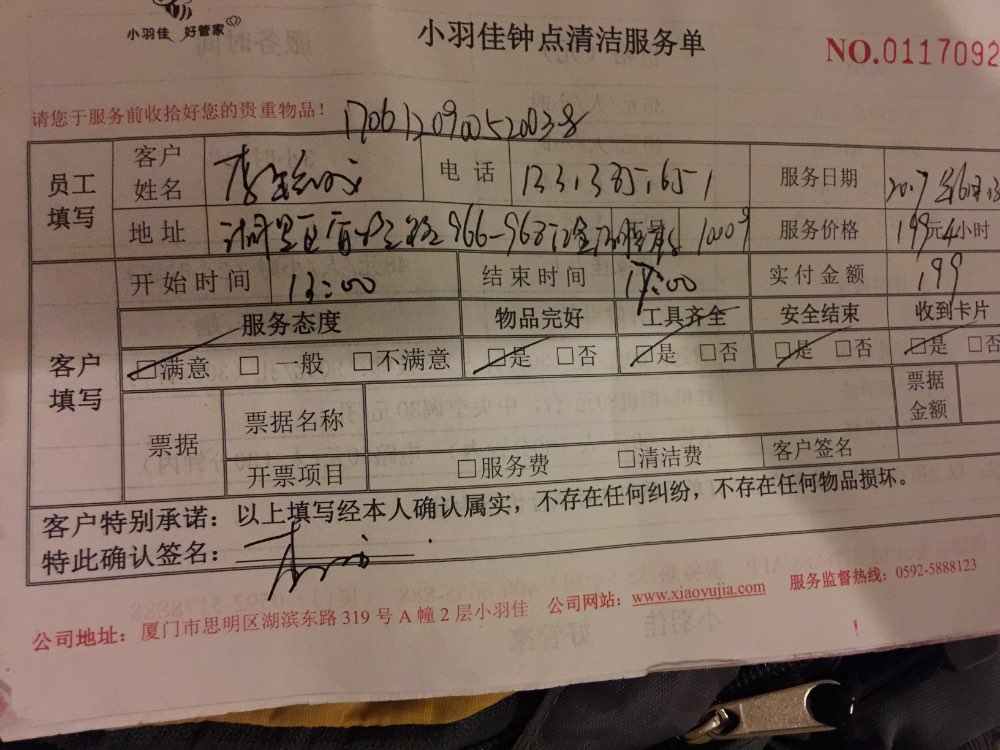 小羽佳 好管家
小羽佳钟点清洁服务单
NO.0117092
请您于服务前收拾好您的贵重物品！
1706120900520038
员工填写 客户姓名 电话 服务日期
地址 966-968 服务价格 199元4小时
开始时间 13:00 结束时间 17:00 实付金额 199
客户填写 服务态度 物品完好 工具齐全 安全结束 收到卡片
□满意 □一般 □不满意 □是 □否 □是 □否 □是 □否 □是 □否
票据 票据名称 票据金额
开票项目 □服务费 □清洁费 客户签名
客户特别承诺：以上填写经本人确认属实，不存在任何纠纷，不存在任何物品损坏。
特此确认签名：
公司地址：厦门市思明区湖滨东路319号A幢2层小羽佳 公司网站：www.xiaoyujia.com 服务监督热线：0592-5888123